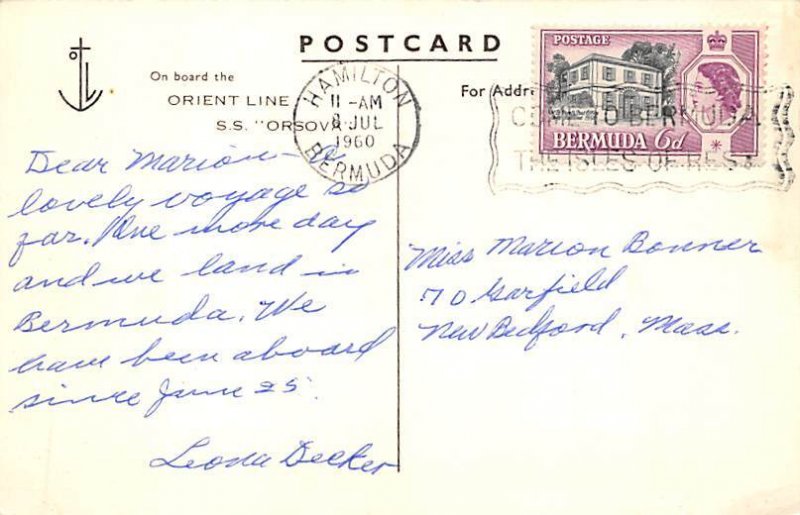 POSTCARD
On board the
ORIENT LINE
S.S. "ORSOVA"
HAMILTON
11-AM
8 JUL
1960
BERMUDA
For Addre
POSTAGE
BERMUDA 6d
COME TO BERMUDA
THE ISLES OF REST
Dear Marion - A
lovely voyage so
far. One more day
and we land in
Bermuda. We
have been aboard
since June 25.
Leona Decker
Miss Marion Bonner
70 Garfield
New Bedford, Mass.